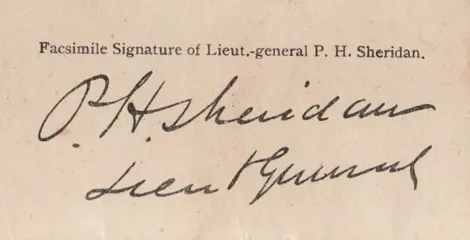 Facsimile Signature of Lieut.-general P. H. Sheridan.
P. H. Sheridan
Lieut General